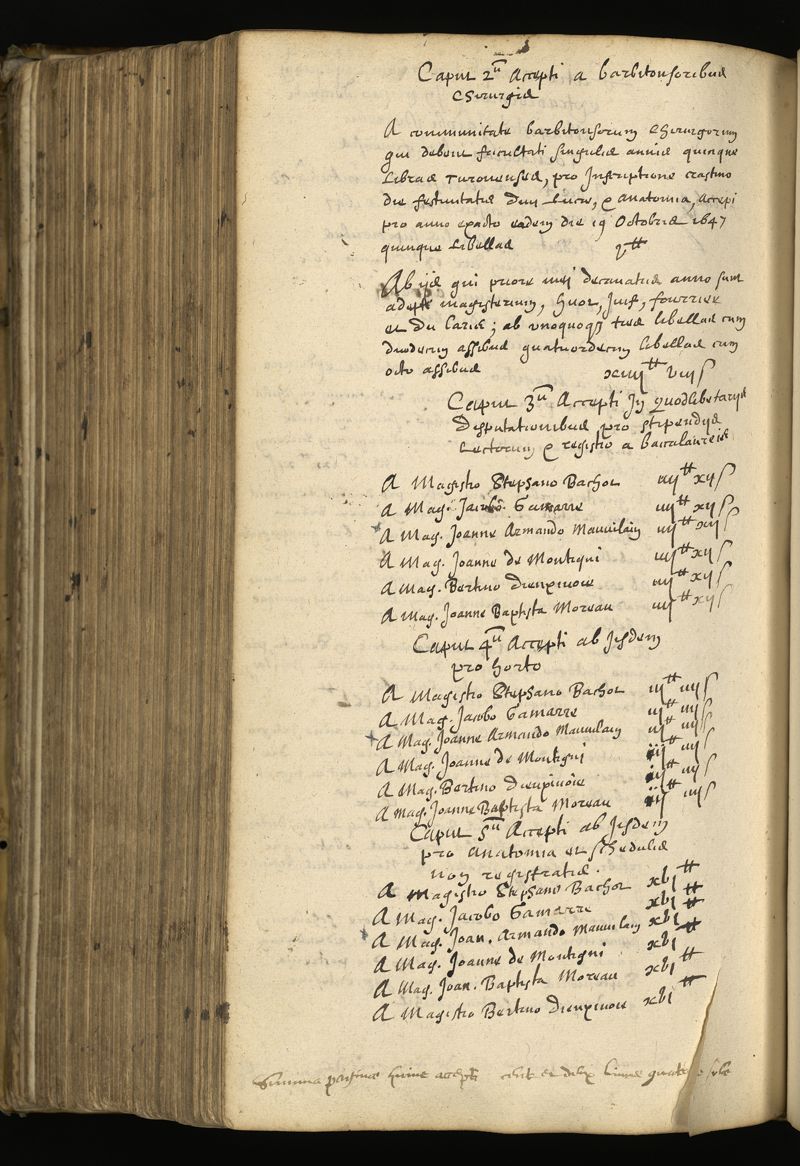 Caput 2ũ Accepti a barbitonsoribus
Chirurgis
A communitate barbitonsorum Chirurgorum
qui debent facultati singulis annis quinque
Libras Turonenses, pro Inscriptione crastino
die festivitatis divi Lucæ, & anatomia, accepi
pro anno exacto eadem die 19 Octobris 1647
quinque Libellas v ₶
Ab ijs qui priore mei decanatus anno sunt
adepti magisterium, Huot, Juif, fourrier
et du Caris; ab unoquoq3 tres libellas cum
duodecim assibus quatuordecim libellas cum
octo assibus xiiij ₶ viij ſ
Caput 3ũ Accepti Jn quodlibetarijs
disputationibus pro stipendijs
Lectorum & registro a baccalaureis
A Magistro Stephano Bachot iiij ₶ xij ſ
A Mag. Jacobo Gamarre iiij ₶ xij ſ
A Mag. Joanne Armando Mauvilain iiij ₶ xij ſ
A Mag. Joanne de Montigni iiij ₶ xij ſ
A Mag. Bertino Dieuxivoie iiij ₶ xij ſ
A Mag. Joanne Baptista Moreau iiij ₶ xij ſ
Caput 4ũ Accepti ab Jisdem
pro horto
A Magistro Stephano Bachot iij ₶ iiij ſ
A Mag. Jacobo Gamarre iij ₶ iiij ſ
A Mag. Joanne Armando Mauvilain iij ₶ iiij ſ
A Mag. Joanne de Montigni iij ₶ iiij ſ
A Mag. Bertino Dieuxivoie iij ₶ iiij ſ
A Mag. Joanne Baptista Moreau iij ₶ iiij ſ
Caput 5ũ Accepti ab Jisdem
pro anatomia et schedulis
non registratis.
A Magistro Stephano Bachot xvi ₶
A Mag. Jacobo Gamarre xvi ₶
A Mag. Joan. Armando Mauvilain xvi ₶
A Mag. Joanne de Montigni xvi ₶
A Mag. Joan. Baptista Moreau xvi ₶
A Magistro Bertino Dieuxivoie xvi ₶
Summa paginæ huius accepti et livres sols